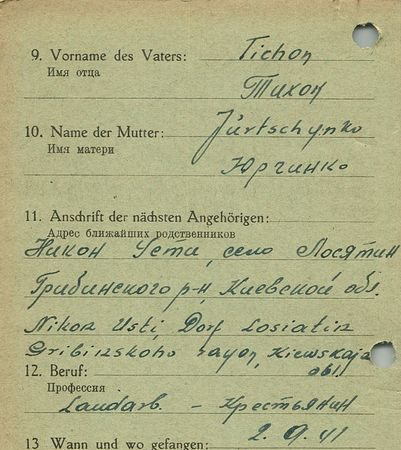 9. Vorname des Vaters: Tichon
Имя отца
Тихон
10. Name der Mutter: Jurtschynko
Имя матери
Юрчинко
11. Anschrift der nächsten Angehörigen:
Адрес ближайших родственников
Никон Усти, село Лосятин
Грибинского р-н, Киевской обл.
Nikon Usti, Dorf Losiatin
Gribinskoho rayon, Kiewskaja
obl.
12. Beruf:
Профессия
Landarb. - Крестьянин
13 Wann und wo gefangen: 2.9.41